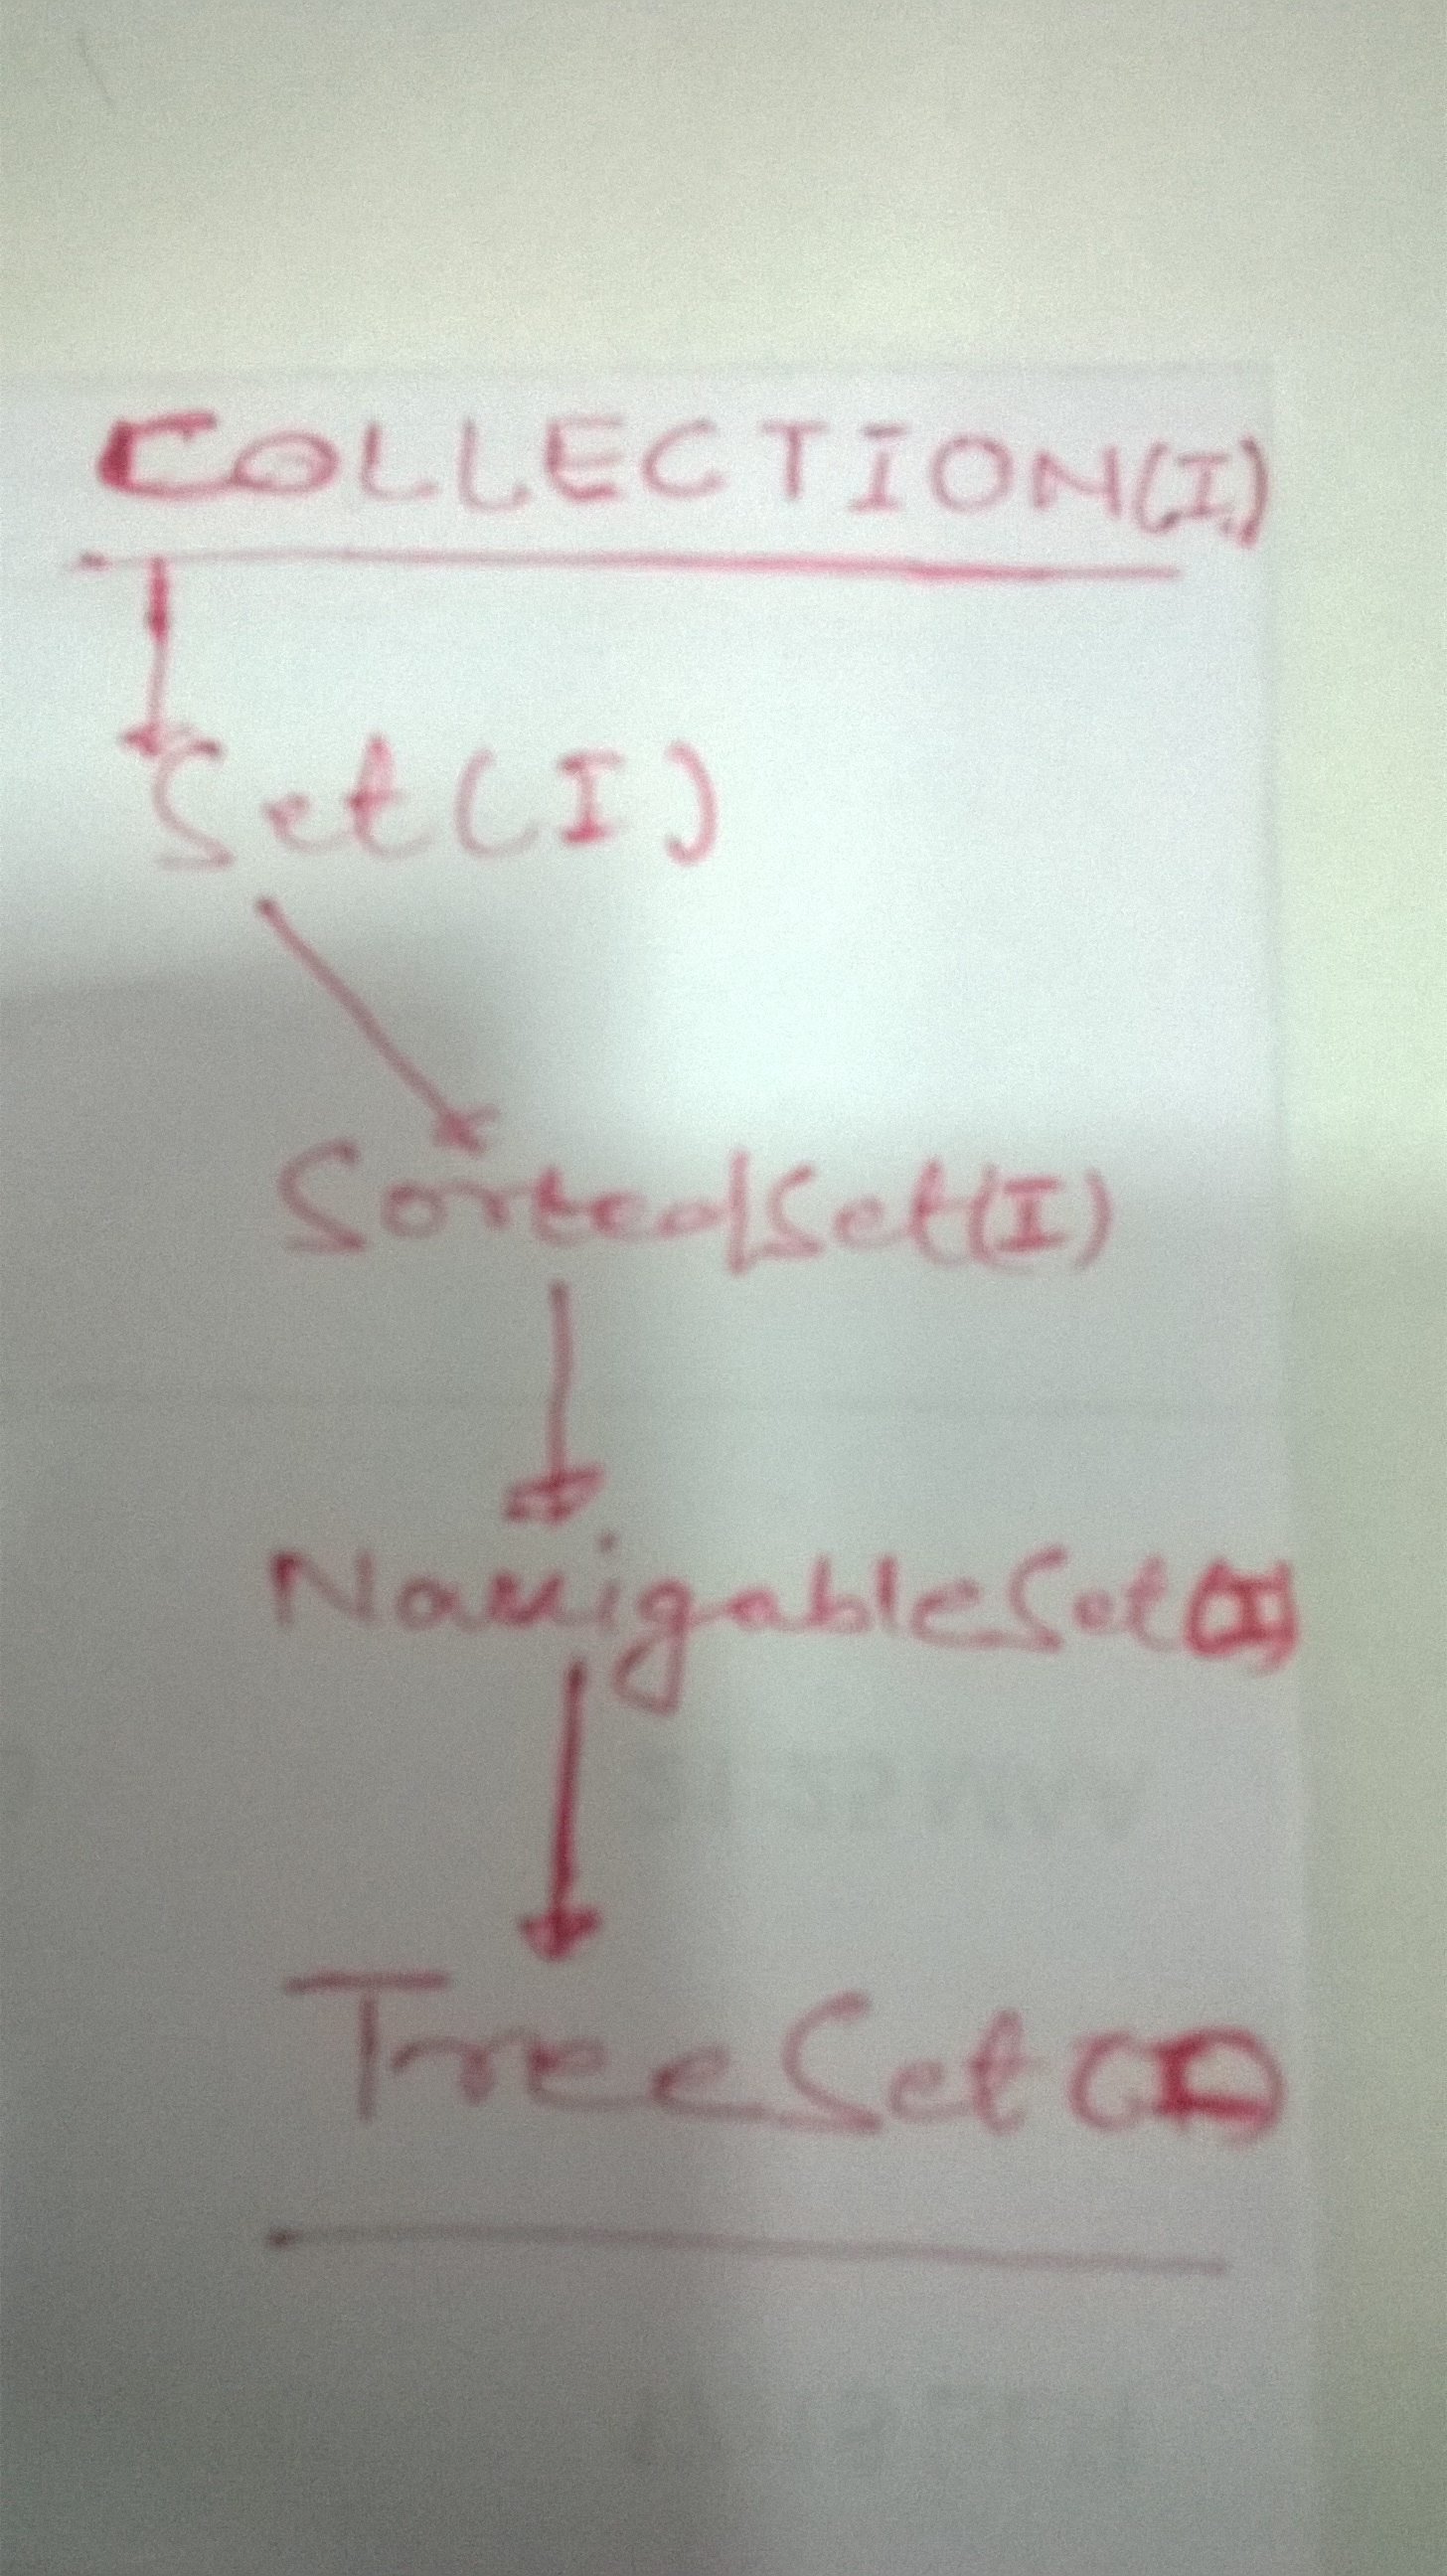 COLLECTION(I)
Set(I)
SortedSet(I)
NavigableSet(I)
TreeSet(I)